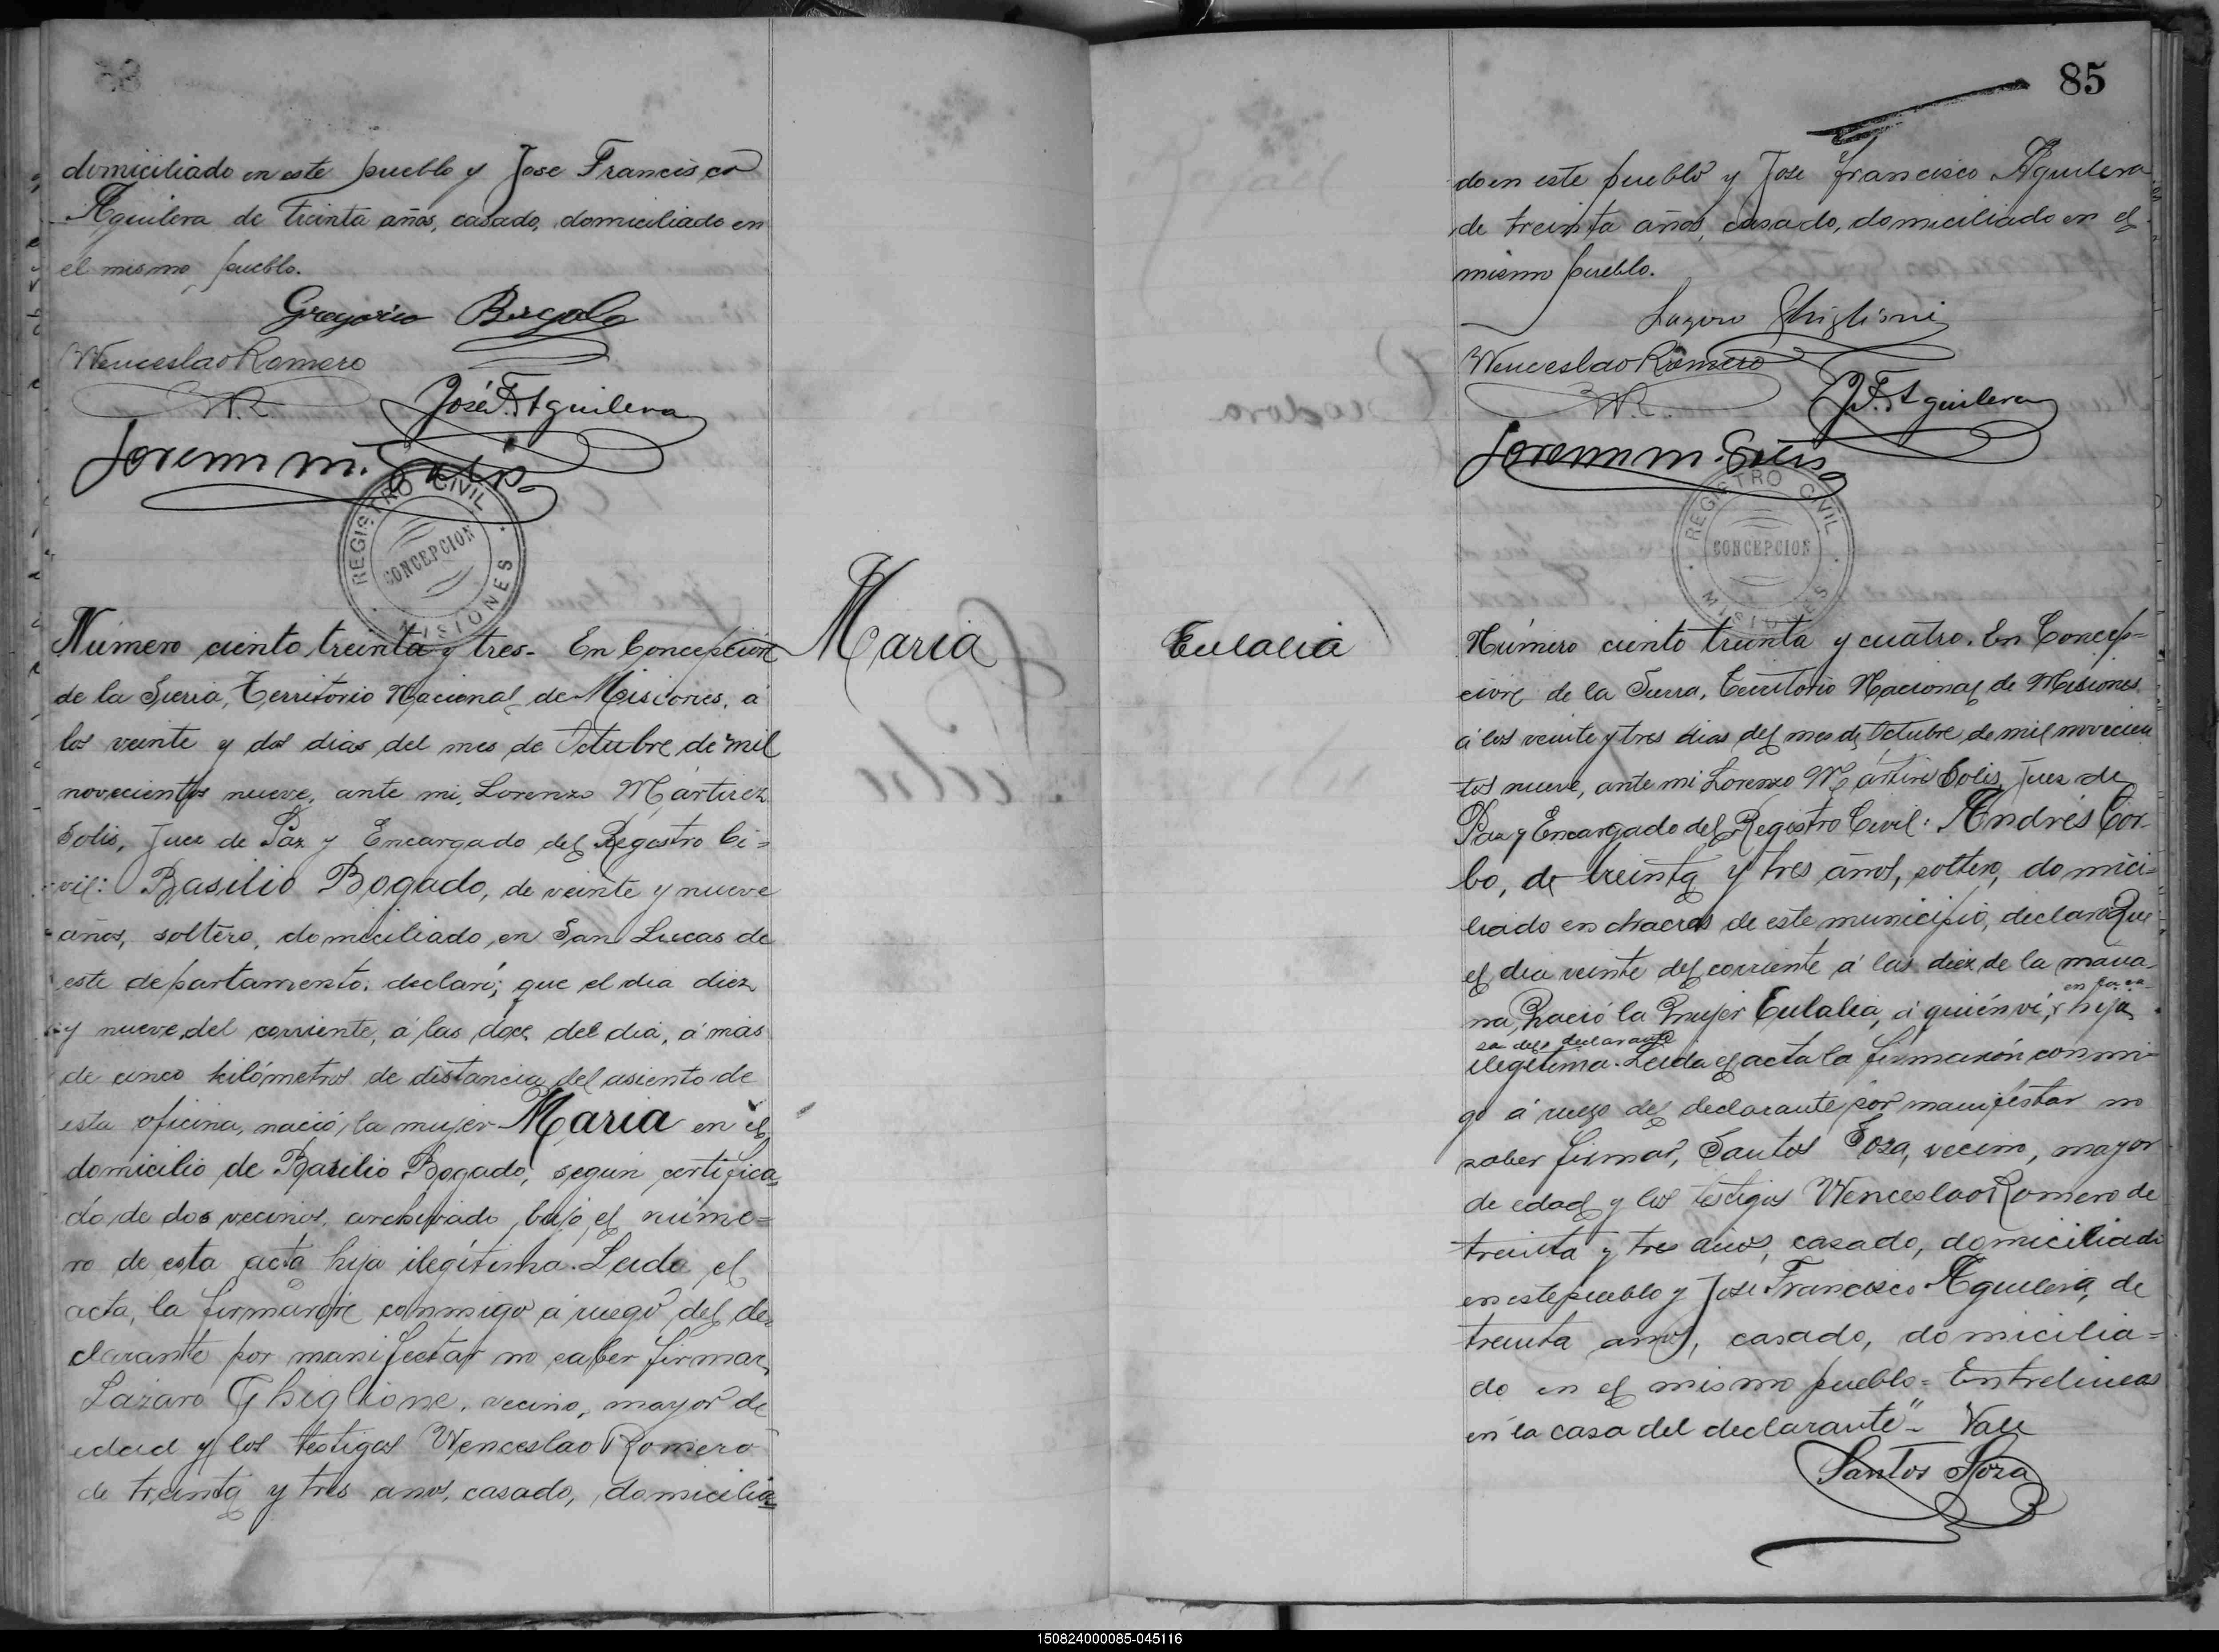 domiciliado en este pueblo y Jose Francisco
Aguilera de treinta años, casado, domiciliado en
el mismo pueblo.
Gregorio
Wenceslao Romero
W.R.
José F. Aguilera
Lorenzo M. Solis
REGISTRO CIVIL
CONCEPCION
MISIONES
Número ciento treinta y tres- En Concepcion
de la Sierra, Territorio Nacional de Misiones, á
los veinte y dos dias del mes de Octubre de mil
novecientos nueve, ante mi, Lorenzo Mártirez
Solis, Juez de Paz y Encargado del Registro Ci=
vil: Basilio Bogado, de veinte y nueve
años, soltero, domiciliado en San Lucas de
este departamento, declaró; que el dia diez
y nueve del corriente, á las doce del dia, á mas
de cinco kilómetros de distancia del asiento de
esta oficina, nació, la mujer Maria en el
domicilio de Basilio Bogado, segun certifica=
do de dos vecinos, archivado bajo el núme=
ro de esta acta hija ilegítima. Leida el
acta, la firmaron conmigo á ruego del de=
clarante por manifestar no saber firmar,
Lázaro Ghiglione, vecino, mayor de
edad y los testigos Wenceslao Romero
de treinta y tres años, casado, domicilia=
Maria
85
do en este pueblo y Jose Francisco Aguilera
de treinta años, casado, domiciliado en el
mismo pueblo.
Lazaro Ghiglioni
Wenceslao Romero
W.R.
J.F. Aguilera
Lorenzo M. Solis
REGISTRO CIVIL
CONCEPCION
MISIONES
Eulalia
Número ciento treinta y cuatro. En Concep=
cion de la Sierra, Territorio Nacional de Misiones
á los veinte y tres dias del mes de Octubre de mil novecien
tos nueve, ante mi Lorenzo Mártires Solis, Juez de
Paz y Encargado del Registro Civil: Andrés Cor-
bo, de treinta y tres años, soltero, domici=
liado en chacras de este municipio, declaró: Que
el dia veinte del corriente á las diez de la maña-
na, nació la mujer Eulalia, á quién ví, hija
en la ca-
sa del declarante
ilegítima. Leida el acta la firmarón conmi-
go á ruego del declarante por manifestar no
saber firmar, Santos Soza, vecino, mayor
de edad y los testigos Wenceslao Romero de
treinta y tres años, casado, domiciliado
en este pueblo y Jose Francisco Aguilera, de
treinta años, casado, domicilia=
do en el mismo pueblo= Entrelineas
en la casa del declarante"- Vale
Santos Soza
150824000085-045116